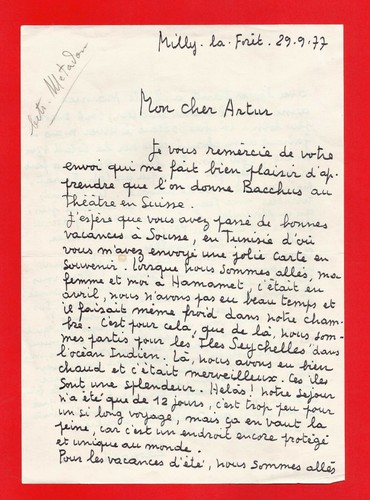 Milly. la. Forêt. 29.9.77
Mon cher Artur
Je vous remèrcie de votre
envoi qui me fait bien plaisir d'ap-
prendre que l'on donne Bacchus au
théâtre en Suisse.
J'éspère que vous avez passé de bonnes
vacances à Sousse, en Tunisie d'où
vous m'avez envoyé une jolie carte en
Souvenir. Lorsque nous sommes allés, ma
femme et moi à Hamamet, c'était en
avril, nous n'avons pas eu beau temps et
il faisait même froid dans notre cham-
bre. C'est pour cela, que de là, nous som-
mes partis pour les Îles Seychelles dans
l'océan Indien. Là, nous avons eu bien
chaud et c'était merveilleux. Ces îles
Sont une splendeur. Helàs! notre Sejour
n'a été que de 12 jours, c'est trop peu pour
un si long voyage, mais ça en vaut la
peine, car c'est un endroit encore protégé
et unique au monde.
Pour les vacances d'été, nous sommes allés